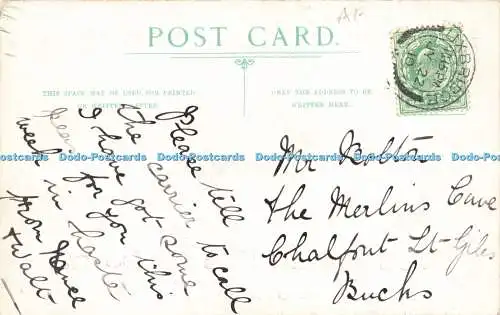 A/-
POST CARD.
THIS SPACE MAY BE USED FOR PRINTED
OR WRITTEN MATTER
ONLY THE ADDRESS TO BE
WRITTEN HERE.
UXBRIDGE
Please tell
the carrier to call
I have got some
peas for you this
week in haste
from
& Walt
Mr Bolton
The Merlins Cave
Chalfont St Giles
Bucks
Dodo-Postcards Dodo-Postcards Dodo-Postcards Dodo-Postcards Dodo-Postcards